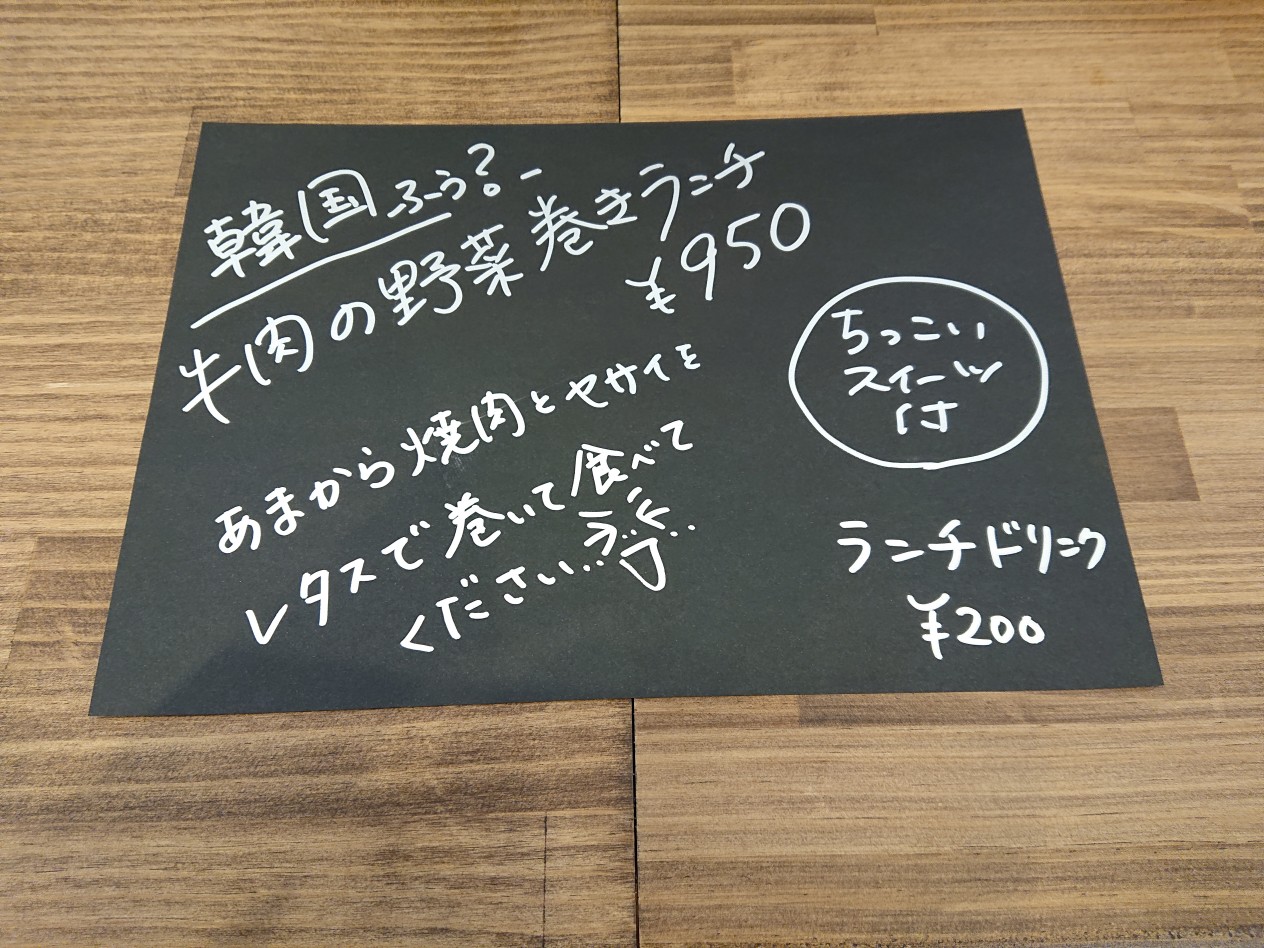 韓国ふーう?
牛肉の野菜巻きランチ
¥950
あまから焼肉とヤサイを
レタスで巻いて食べて
ください‥
ちっこい
スイーツ
付
ランチドリンク
¥200